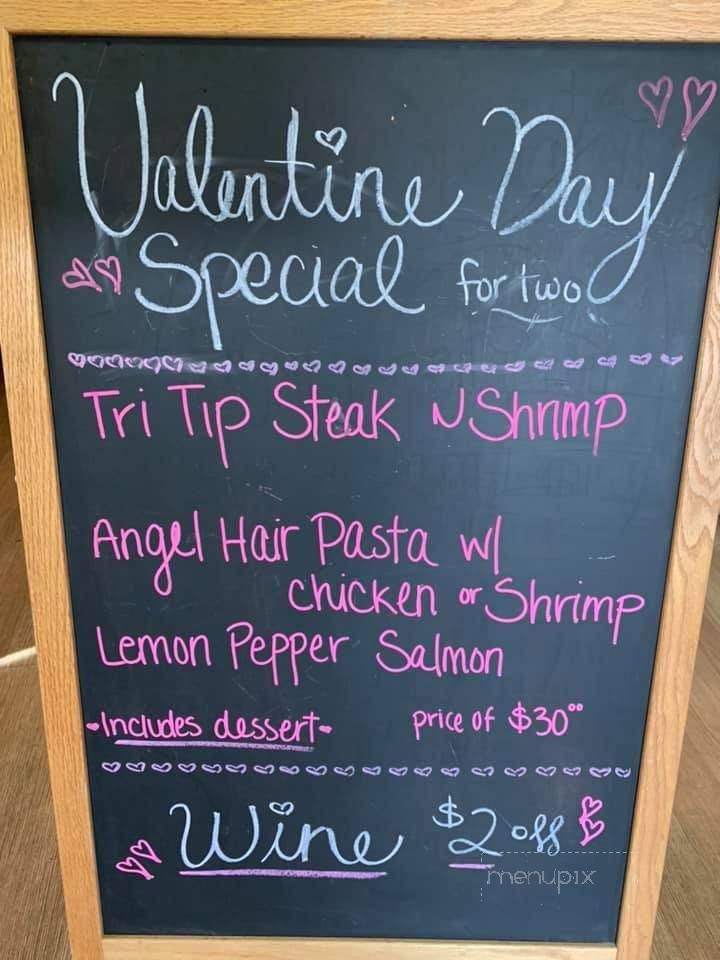 Valentine Day
Special for two
Tri Tip Steak N Shrimp
Angel Hair Pasta w/
chicken or Shrimp
Lemon Pepper Salmon
-Includes dessert- price of $30⁰⁰
Wine $2 off
menupix